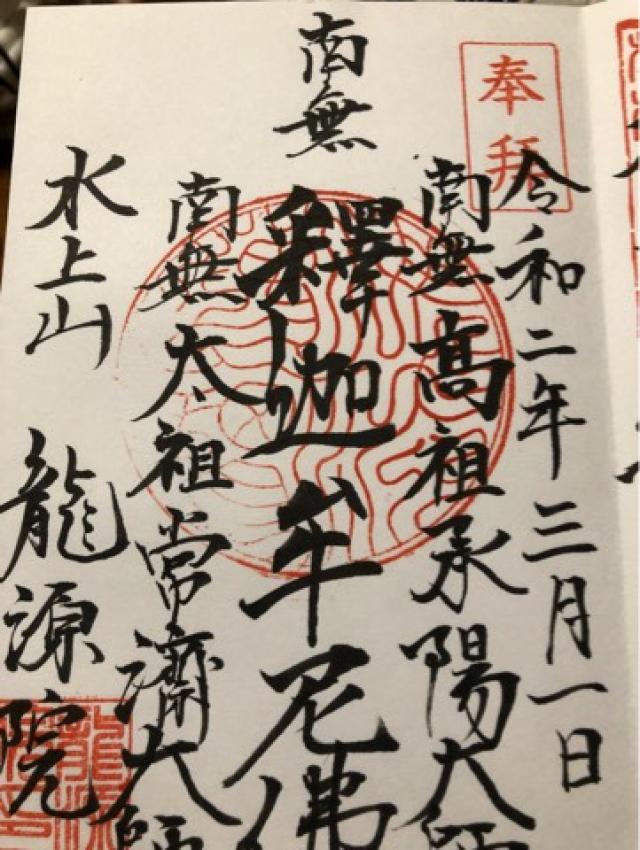 奉拜
令和二年三月一日
南無高祖承陽大師
南無釋迦牟尼佛
南無太祖常濟大師
水上山 龍源院